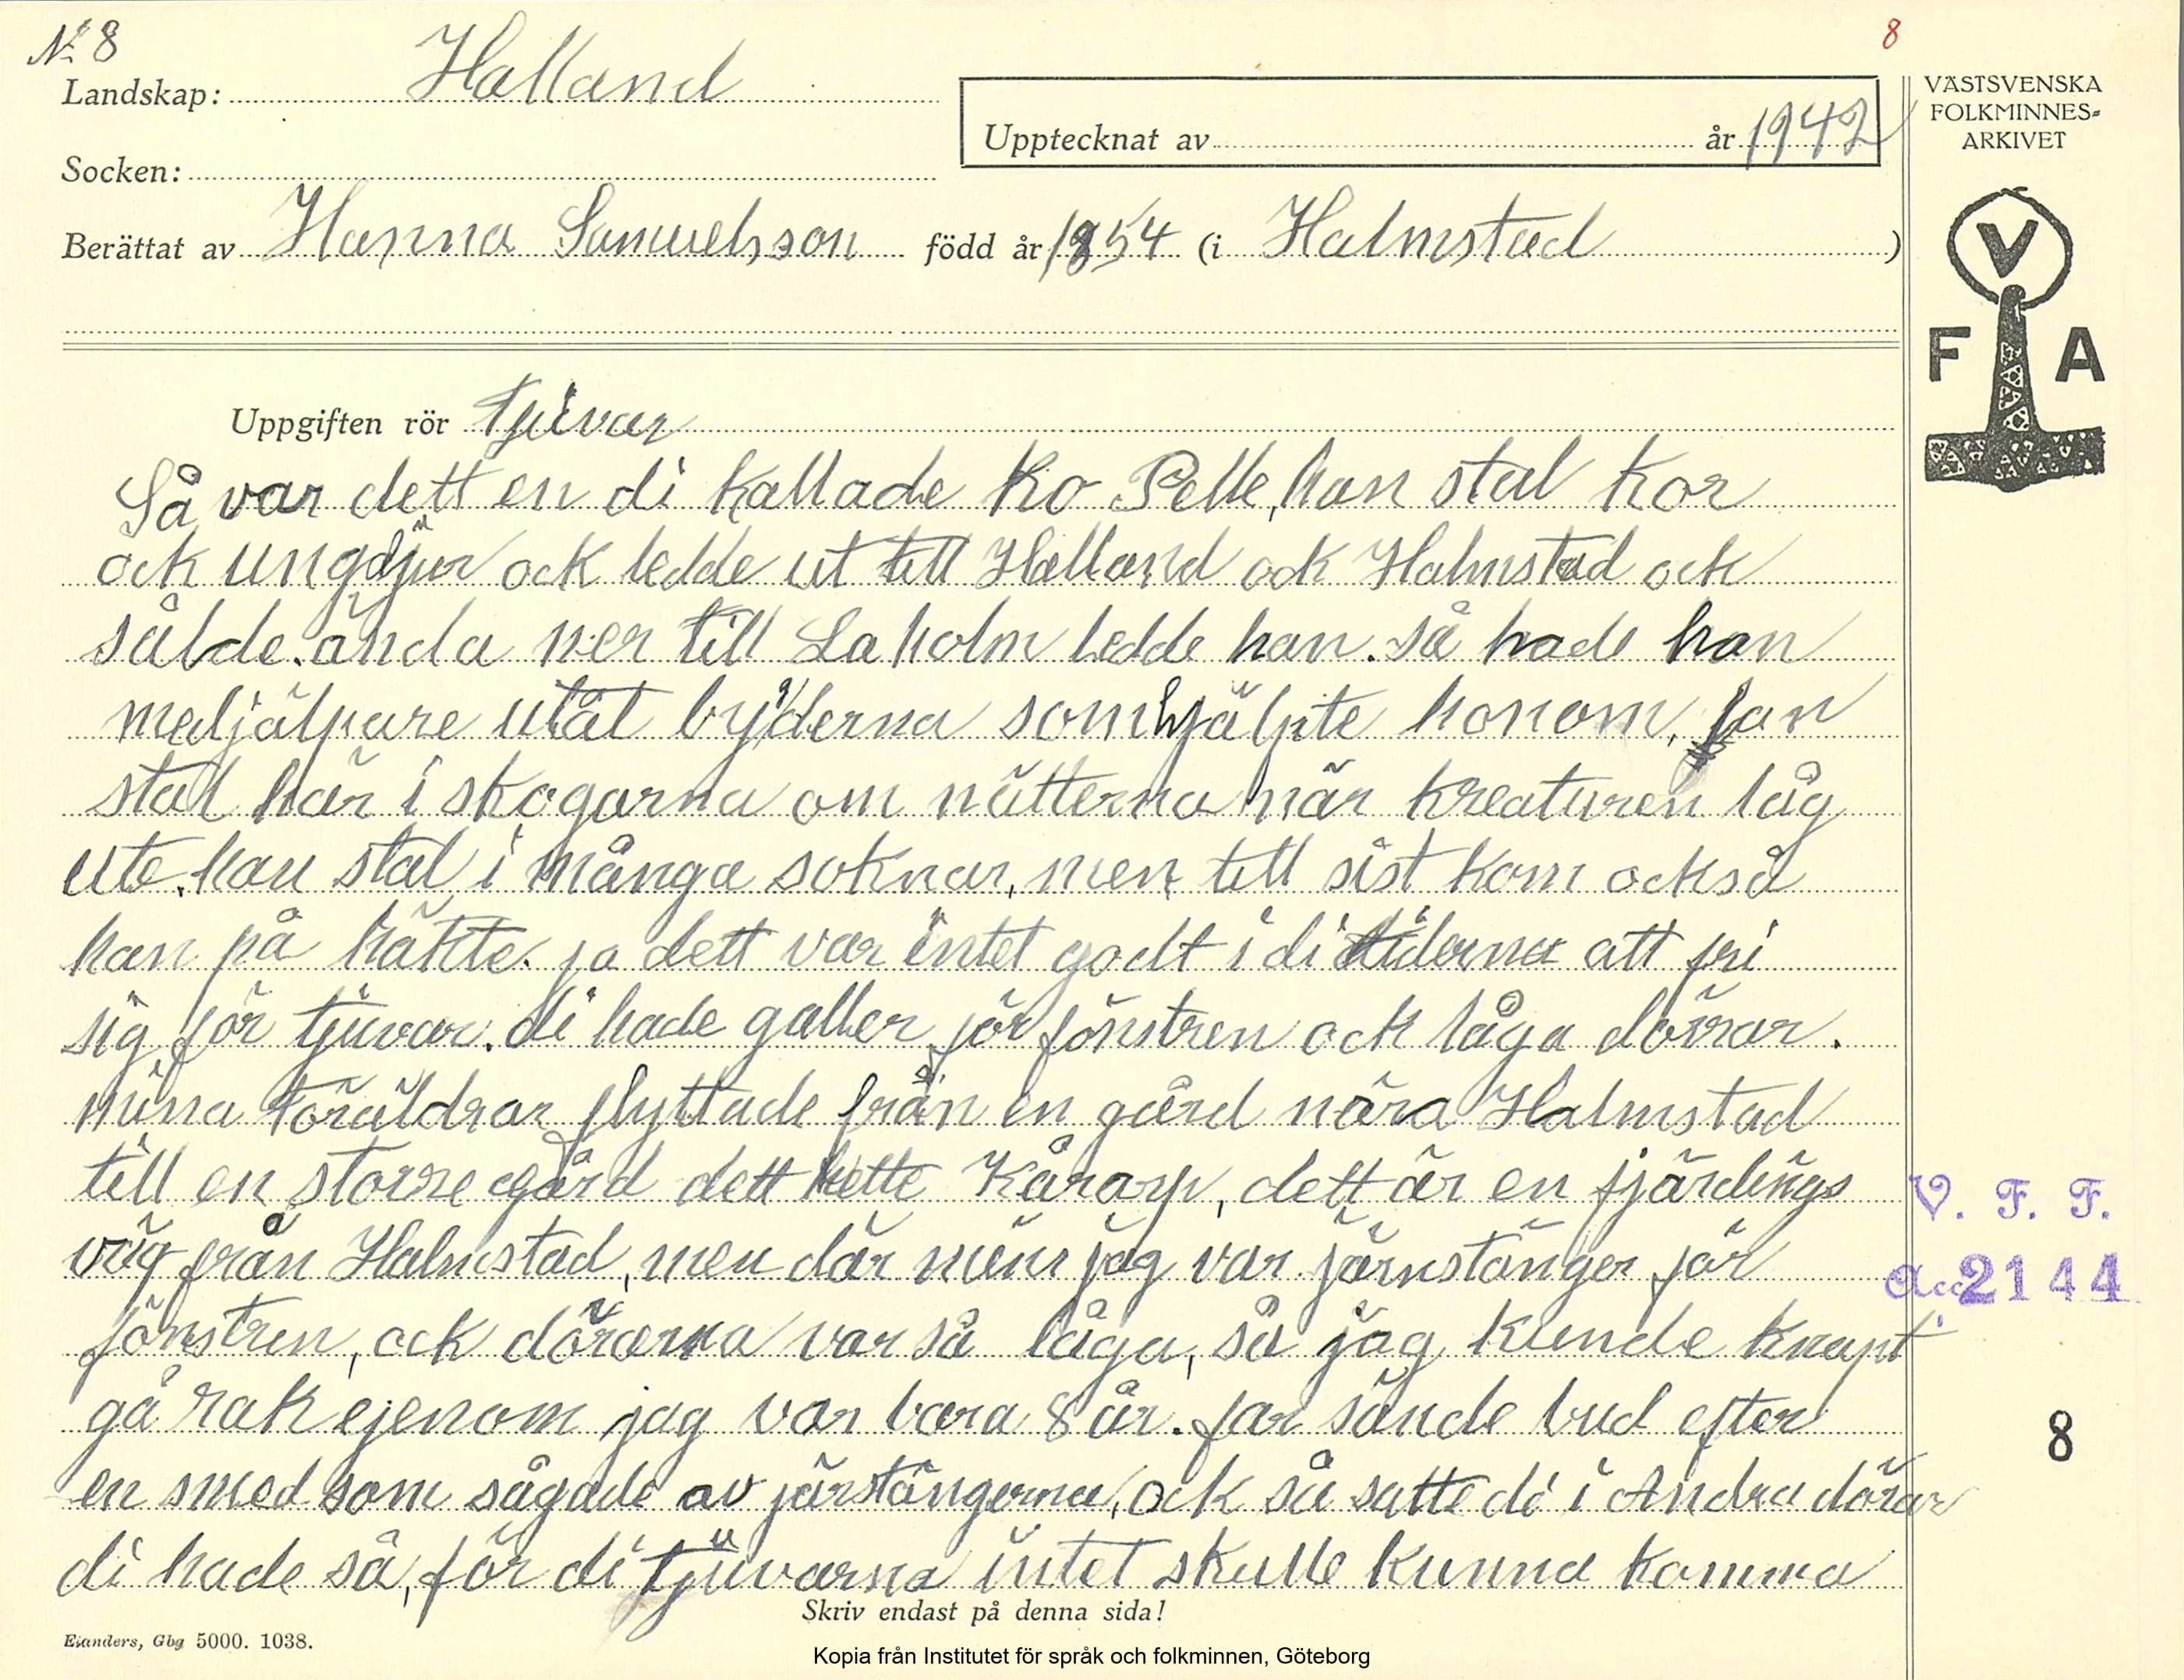 № 8
8
Landskap: Halland
Upptecknat av år 1942
Socken:
Berättat av Hanna Samuelsson född år 1854 (i Halmstad )
VÄSTSVENSKA
FOLKMINNES-
ARKIVET
V
F A
Uppgiften rör Tjuvar
Så var dett en di kallade Ko Pelle, han stal kor
ock ungdjur ock ledde ut till Halland ock Halmstad ock
sålde. ända ner till Laholm ledde han. så hade han
medjälpare utåt byderna som hjälpte honom, han
stal här i skogarna om nätterna när kreaturen låg
ute. han stal i många soknar, men till sist kom också
han på häkte. ja dett var intet godt i di tiderna att fri
sig för tjuvar. di hade galler för fönstren ock låga dörrar.
mina föräldrar flyttade från en gård nära Halmstad
till en större gård dett hette Kårarp, dett är en fjärdings
väg från Halmstad, men där mins jag var järnstänger för
fönstren, ock dörarna var så låga, så jag kunde knapt
gå rak ejenom jag var bara 8 år. far sände bud efter
en smed som sågade av järstängerna, ock så satte di i Andra dörar
di hade så, för di tjuvarna intet skulle kunna komma
V. F. F.
Acc 2144
8
Skriv endast på denna sida!
Elanders, Gbg 5000. 1038.
Kopia från Institutet för språk och folkminnen, Göteborg